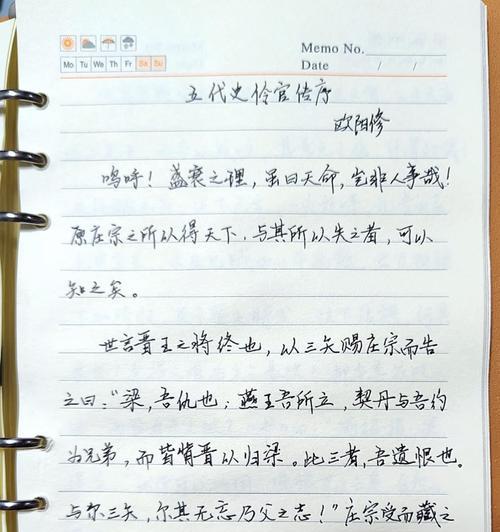 Memo No.
Mo Tu We Th Fr Sa Su
Date / /
五代史伶官传序
欧阳修
呜呼！盛衰之理，虽曰天命，岂非人事哉！
原庄宗之所以得天下，与其所以失之者，可以
知之矣。
世言晋王之将终也，以三矢赐庄宗而告
之曰：“梁，吾仇也；燕王吾所立，契丹与吾约
为兄弟，而皆背晋以归梁。此三者，吾遗恨也。
与尔三矢，尔其无忘乃父之志！”庄宗受而藏之